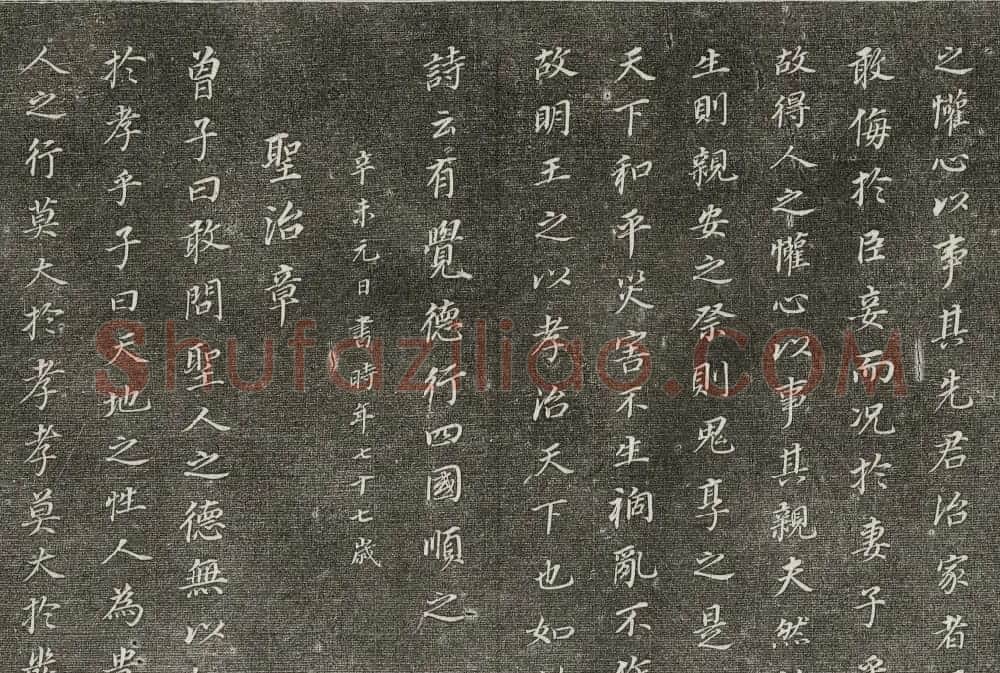 之懽心以事其先君治家者
敢侮於臣妾而况於妻子
故得人之懽心以事其親夫然
生則親安之祭則鬼享之是
天下和平災害不生禍亂不作
故明王之以孝治天下也如
詩云有覺德行四國順之
辛未元日書時年七十七歲
聖治章
曾子曰敢問聖人之德無以
於孝乎子曰天地之性人為貴
人之行莫大於孝孝莫大於
Shufaziliao.COM